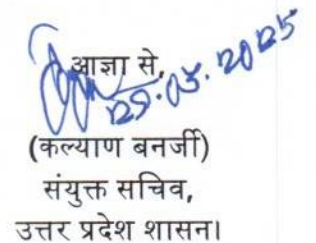 आज्ञा से,
29.05.2025
(कल्याण बनर्जी)
संयुक्त सचिव,
उत्तर प्रदेश शासन।